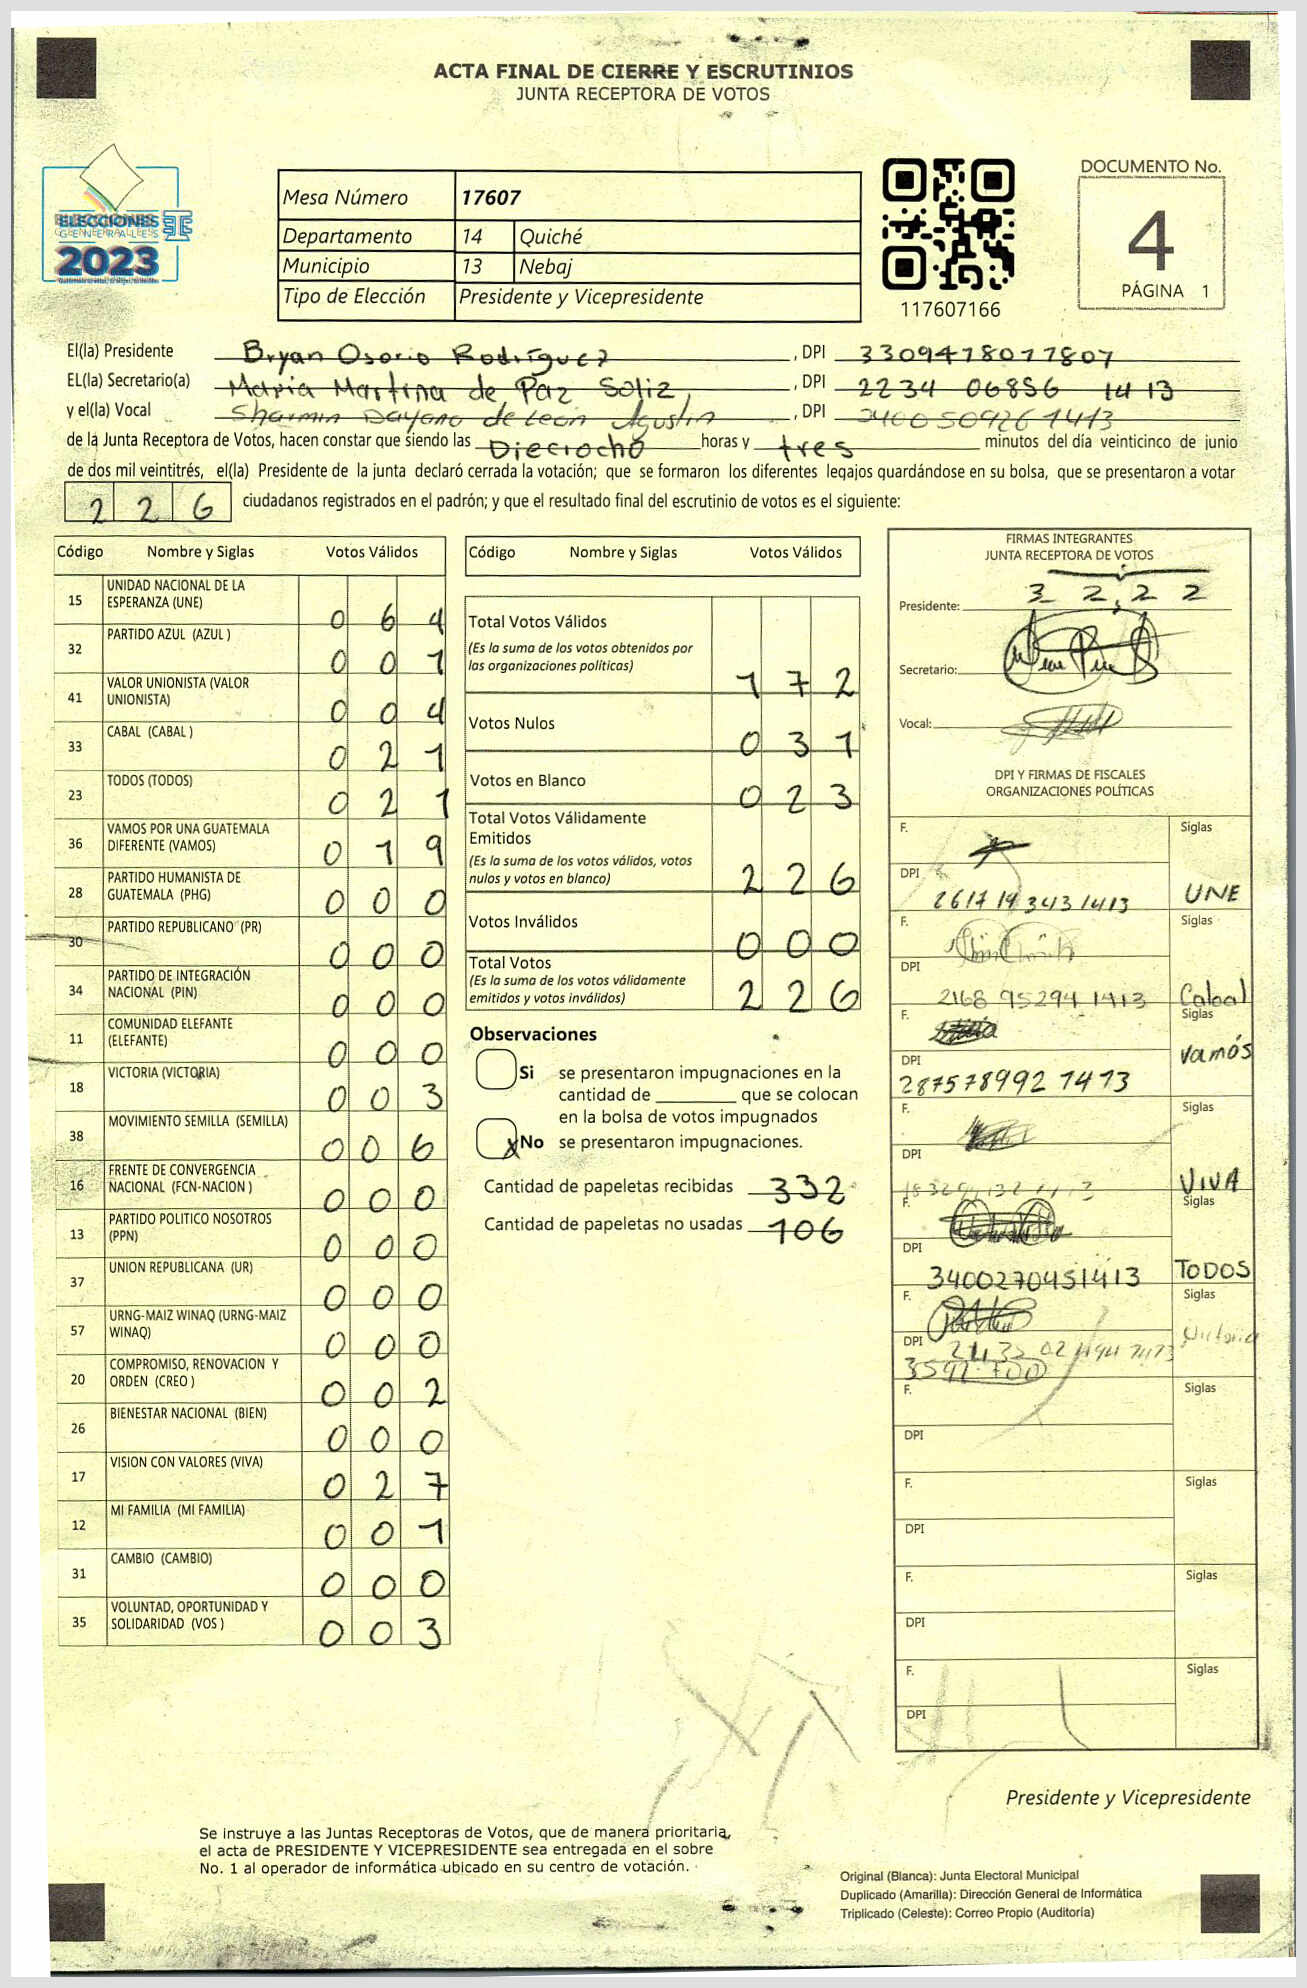 ACTA FINAL DE CIERRE Y ESCRUTINIOS
JUNTA RECEPTORA DE VOTOS
ELECCIONES
GENERALES
2023
Mesa Número 17607
Departamento 14 Quiché
Municipio 13 Nebaj
Tipo de Elección Presidente y Vicepresidente
117607166
DOCUMENTO No.
4
PÁGINA 1
El(la) Presidente Bryan Osorio Rodríguez, DPI 3309478011807
EL(la) Secretario(a) Maria Martina de Paz Soliz, DPI 2234 06856 1413
y el(la) Vocal Sharmin Dayana de León Agustin, DPI 3400509261413
de la Junta Receptora de Votos, hacen constar que siendo las Dieciocho horas y tres minutos del día veinticinco de junio
de dos mil veintitrés, el(la) Presidente de la junta declaró cerrada la votación; que se formaron los diferentes legajos quardándose en su bolsa, que se presentaron a votar
226 ciudadanos registrados en el padrón; y que el resultado final del escrutinio de votos es el siguiente:
Código Nombre y Siglas Votos Válidos
15 UNIDAD NACIONAL DE LA ESPERANZA (UNE) 0 6 4
32 PARTIDO AZUL (AZUL ) 0 0 1
41 VALOR UNIONISTA (VALOR UNIONISTA) 0 0 4
33 CABAL (CABAL ) 0 2 1
23 TODOS (TODOS) 0 2 1
36 VAMOS POR UNA GUATEMALA DIFERENTE (VAMOS) 0 1 9
28 PARTIDO HUMANISTA DE GUATEMALA (PHG) 0 0 0
30 PARTIDO REPUBLICANO (PR) 0 0 0
34 PARTIDO DE INTEGRACIÓN NACIONAL (PIN) 0 0 0
11 COMUNIDAD ELEFANTE (ELEFANTE) 0 0 0
18 VICTORIA (VICTORIA) 0 0 3
38 MOVIMIENTO SEMILLA (SEMILLA) 0 0 6
16 FRENTE DE CONVERGENCIA NACIONAL (FCN-NACION ) 0 0 0
13 PARTIDO POLITICO NOSOTROS (PPN) 0 0 0
37 UNION REPUBLICANA (UR) 0 0 0
57 URNG-MAIZ WINAQ (URNG-MAIZ WINAQ) 0 0 0
20 COMPROMISO, RENOVACION Y ORDEN (CREO ) 0 0 2
26 BIENESTAR NACIONAL (BIEN) 0 0 0
17 VISION CON VALORES (VIVA) 0 2 7
12 MI FAMILIA (MI FAMILIA) 0 0 1
31 CAMBIO (CAMBIO) 0 0 0
35 VOLUNTAD, OPORTUNIDAD Y SOLIDARIDAD (VOS ) 0 0 3
Código Nombre y Siglas Votos Válidos
Total Votos Válidos 1 7 2
(Es la suma de los votos obtenidos por
las organizaciones políticas)
Votos Nulos 0 3 1
Votos en Blanco 0 2 3
Total Votos Válidamente
Emitidos
(Es la suma de los votos válidos, votos
nulos y votos en blanco) 2 2 6
Votos Inválidos 0 0 0
Total Votos
(Es la suma de los votos válidamente
emitidos y votos inválidos) 2 2 6
Observaciones
Si se presentaron impugnaciones en la
cantidad de ________ que se colocan
en la bolsa de votos impugnados
x No se presentaron impugnaciones.
Cantidad de papeletas recibidas 332
Cantidad de papeletas no usadas 106
FIRMAS INTEGRANTES
JUNTA RECEPTORA DE VOTOS
Presidente:
Secretario:
Vocal:
DPI Y FIRMAS DE FISCALES
ORGANIZACIONES POLÍTICAS
F. Siglas
DPI 2617 19 343 1413 UNE
F. Siglas
DPI 2168 95294 1413 Cabal
F. Siglas
DPI 287578992 1413 Vamós
F. Siglas
DPI VIVA
F. Siglas
DPI 3400270451413 TODOS
F. Siglas
DPI Victoria
F. Siglas
DPI
F. Siglas
DPI
F. Siglas
DPI
F. Siglas
DPI
Presidente y Vicepresidente
Se instruye a las Juntas Receptoras de Votos, que de manera prioritaria,
el acta de PRESIDENTE Y VICEPRESIDENTE sea entregada en el sobre
No. 1 al operador de informática ubicado en su centro de votación.
Original (Blanca): Junta Electoral Municipal
Duplicado (Amarilla): Dirección General de Informática
Triplicado (Celeste): Correo Propio (Auditoría)